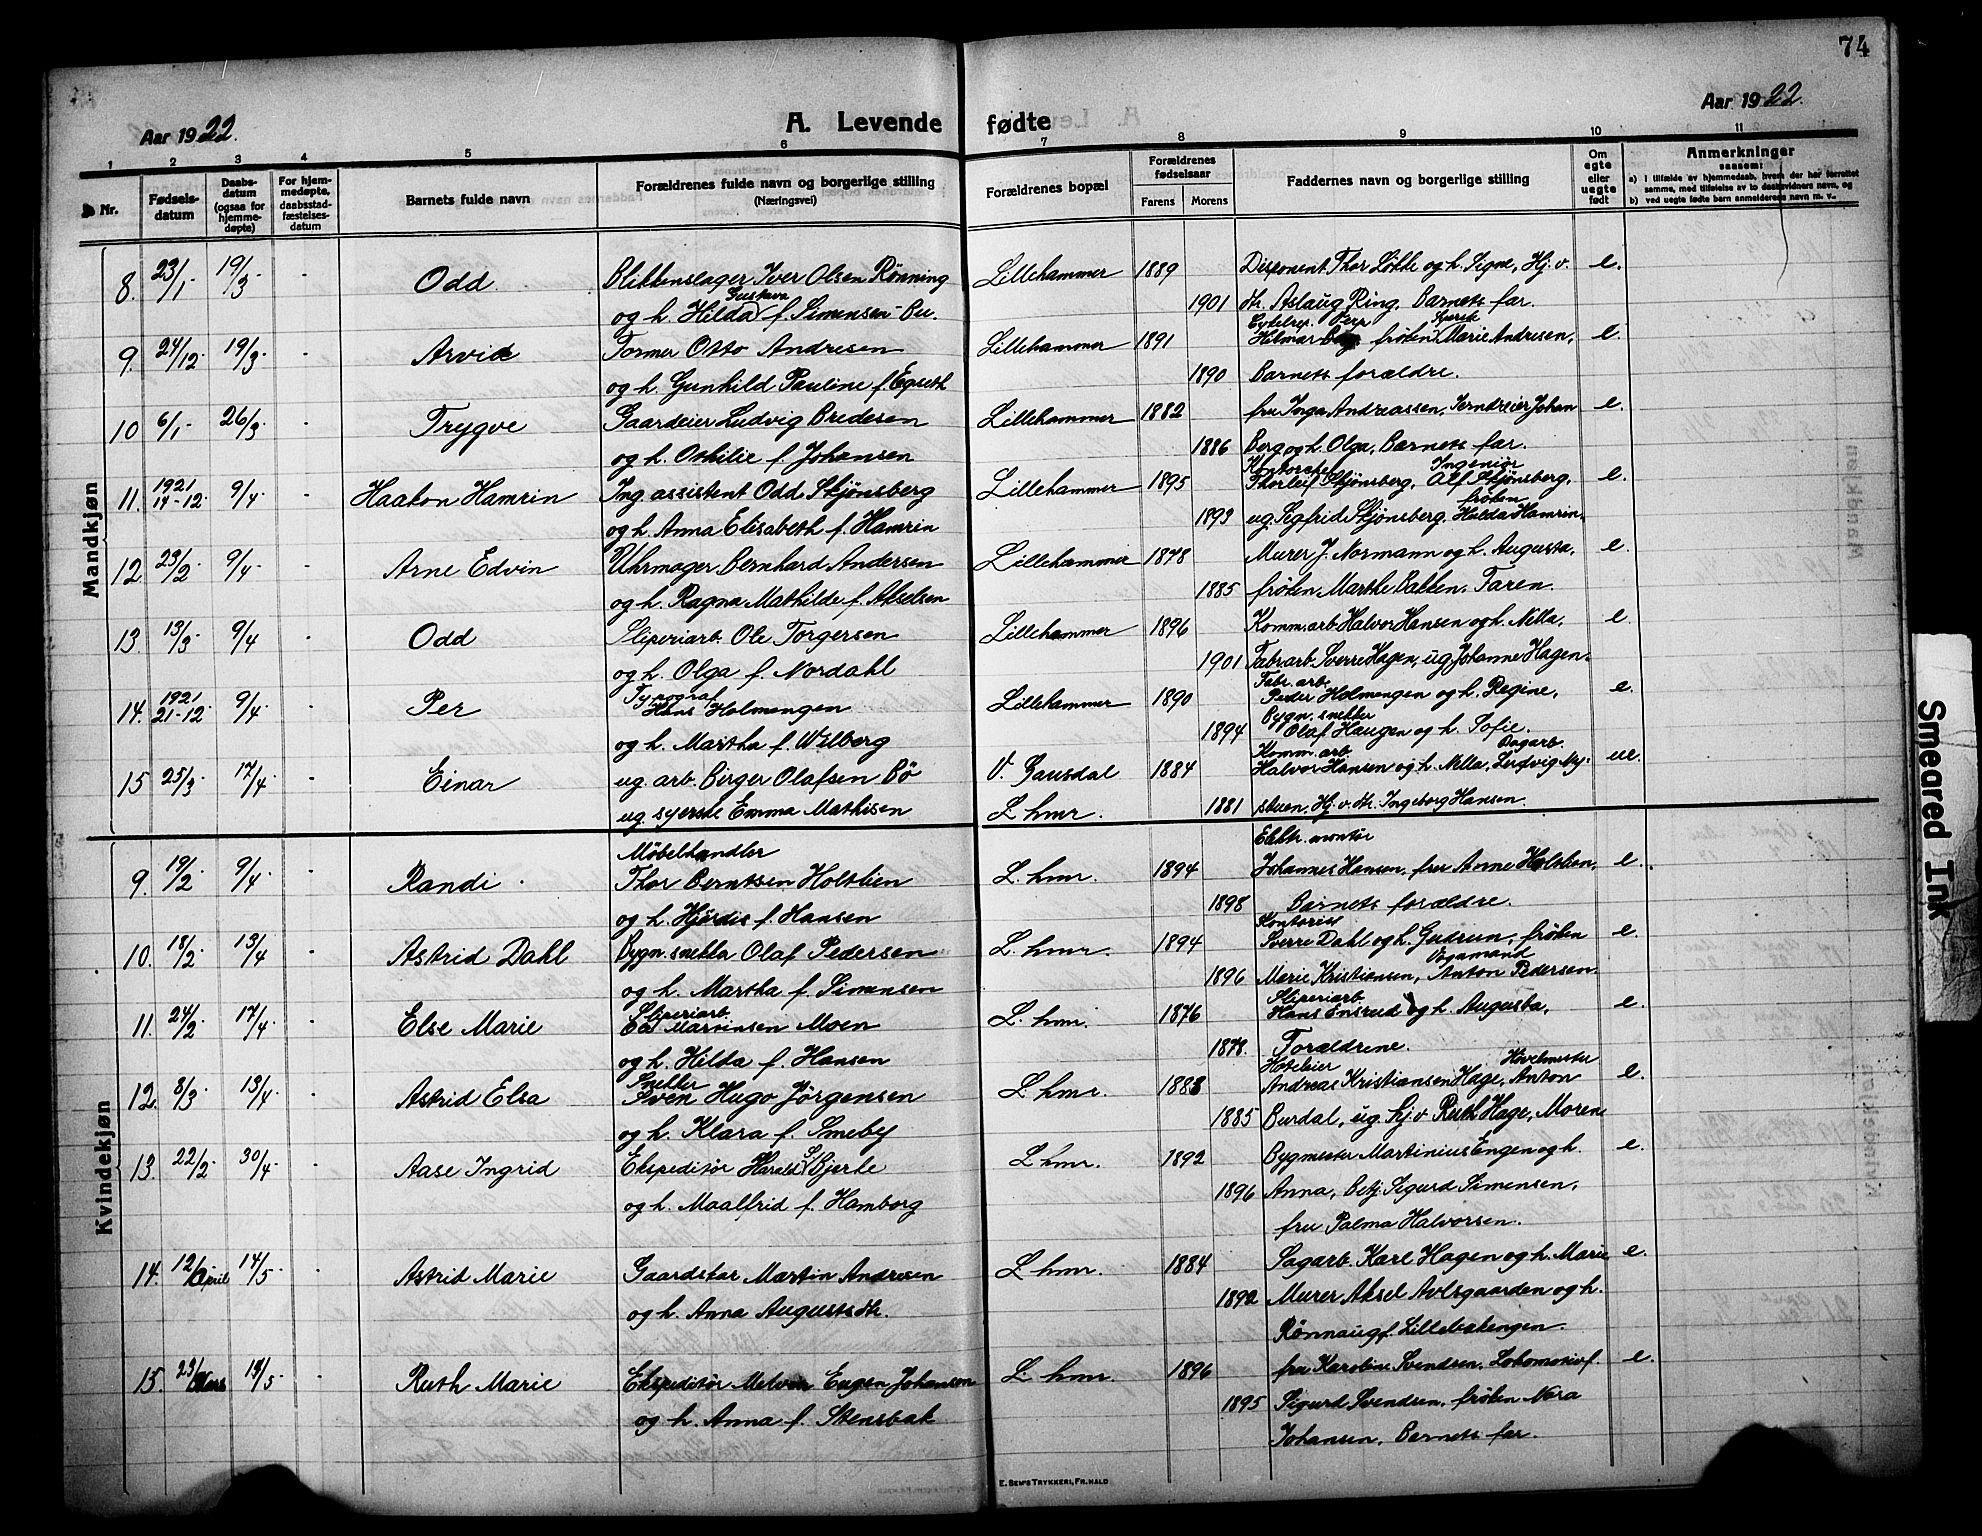 74
Aar 1922.
A. Levende fødte
Aar 1922.
1 2 3 4 5 6 7 8 9 10 11
Nr. Fødsels-datum Daabs-datum (ogsaa for hjemme-døpte) For hjem-medøpte, daabsstad-fæstelses-datum Barnets fulde navn Forældrenes fulde navn og borgerlige stilling (Næringsvei) Forældrenes bopæl Forældrenes fødselsaar Farens Morens Faddernes navn og borgerlige stilling Om egte eller uegte født Anmerkninger
saasom:
a) i tilfælde av hjemmedaab, hvem der har forrettet samme, med tilføielse av to daabsvidners navn, og
b) ved uegte fødte barn anmelderens navn m. v..
Mandkjøn
8. 23/1- 19/3- - Odd. Blikkenslager Iver Olsen Rönning Lillehammer 1889 Disponent Thor Løkke og h. Signe, Hj. v. e.
og h. Hilda Gustava f. Simensen-Bu. 1901 dtr. Aslaug Ring. Barnets far.
9. 24/12- 19/3- - Arvid Former Otto Andresen Lillehammer 1891 Hilmar fröken Marie Andresen, e.
og h. Gunhild Pauline f. Egseth 1890 Barnets forældre.
10 6/1- 26/3- - Trygve Gaardeier Ludvig Bredesen Lillehammer 1882 fru Inga Andreassen, Johan e
og h. Othilie f. Johansen 1886 Berg og h. Olga, Barnets far.
11. 1921 14-12. 9/4 - Haakon Hamrin Ing. assistent Odd Skjönsberg Lillehammer 1895 Kontorchef Thorleif Skjönsberg, Ingeniör Alf Skjönsberg, e.
og h. Anna Elisabeth f. Hamrin 1893 ug. Sigfrid Skjönsberg, fröken Hulda Hamrin.
12 23/2- 9/4- - Arne Edvin Uhrmager Bernhard Andersen Lillehammer 1878 Murer J. Normann og h. Augusta, e.
og h. Ragna Mathilde f. Akselsen 1885 fröken Marthe Bakken. Faren.
13. 13/3- 9/4 - Odd Sliperiarb. Ole Torgersen Lillehammer 1896 Komm. arb. Halvor Hansen og h. Nilla, e
og h. Olga f. Nordahl 1901 Fabr. arb. Sverre Hagen, ug. Johanne Hagen.
14. 1921 21-12. 9/4 - Per Typograf Hans Holmengen Lillehammer 1890 Fabr. arb. Peder Holmengen og h. Regine, e.
og h. Martha f. Wilberg 1894 Bygn. snekker Olaf Haugen og h. Sofie.
15 25/3- 17/4 - Einar ug. arb. Birger Olafsen Bö V. Gausdal 1884 Komm. arb. Halvor Hansen og h. Nilla, Dagarb. Ludvig Ny- ue.
ug. syerske Emma Mathisen L. hmr. 1881 stuen, Hj. v. dtr. Ingeborg Hansen.
Kvindekjøn
9. 19/2- 9/4- - Randi Möbelhandler Thor Berntsen Holtlien L. hmr. 1894 Elektr. montör Johannes Hansen, fru Anne Holtlien, e.
og h. Hjördis f. Hansen 1898 Barnets forældre.
10. 18/2- 13/4 - Astrid Dahl Bygn. snekker Olaf Pedersen L. hmr. 1894 Kontorist Sverre Dahl og h. Gudrun, fröken e.
og h. Martha f. Simensen 1896 Marie Kristiansen, Anton Pedersen.
11. 24/2- 17/4- - Else Marie Sliperiarb. Martinsen Moen L. hmr. 1876 Sliperiarb. Hans Ensrud og h. Augusta, e
og h. Hilda f. Hansen 1878. Forældrene.
12. 8/3- 13/4- - Astrid Elsa Snekker Sven Hugo Jörgensen L. hmr. 1883 Hoteleier Andreas Kristiansen Hage, Hovelmester Anton e.
og h. Klara f. Smeby 1885 Burdal, ug. hj. v Ruth Hage, Moren
13. 22/2- 30/4- - Aase Ingrid Ekspeditör Harald Bjerke L. hmr. 1892 Bygmester Martinius Engen og h. e.
og h. Maalfrid f. Hamborg 1896 Anna, Betj. Sigurd Simensen,
fru Palma Halvorsen.
14. 12/April 14/5- - Astrid Marie Gaardskar Martin Andresen L. hmr. 1884 Sagarb. Karl Hagen og h. Marie e.
og h. Anna Augustsdtr. 1892 Murer Aksel Avlsgaarden og h.
Rönnaug f. Lillebakengen.
15. 23/Mars 14/5- - Ruth Marie Ekspeditör Melvin Eugen Johansen L. hmr. 1896 fru Karoline Svendsen, Lokomotivf. e.
og h. Anna f. Stensbak 1895 Sigurd Svendsen, fröken Nora
Johansen, Barnets far.
E. Sem's Trykkeri, Fr.hald
Smeared Ink